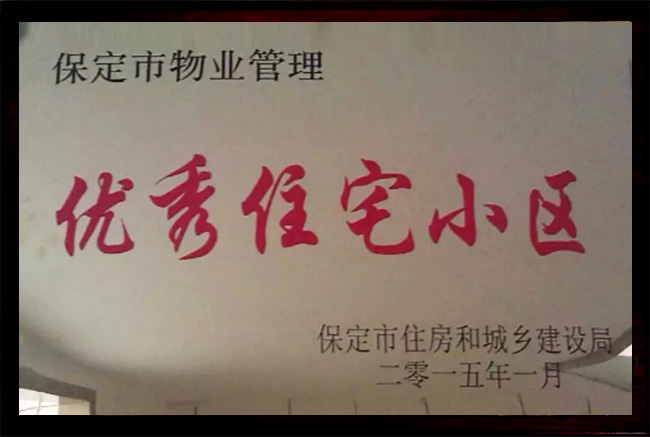 保定市物业管理
优秀住宅小区
保定市住房和城乡建设局
二零一五年一月